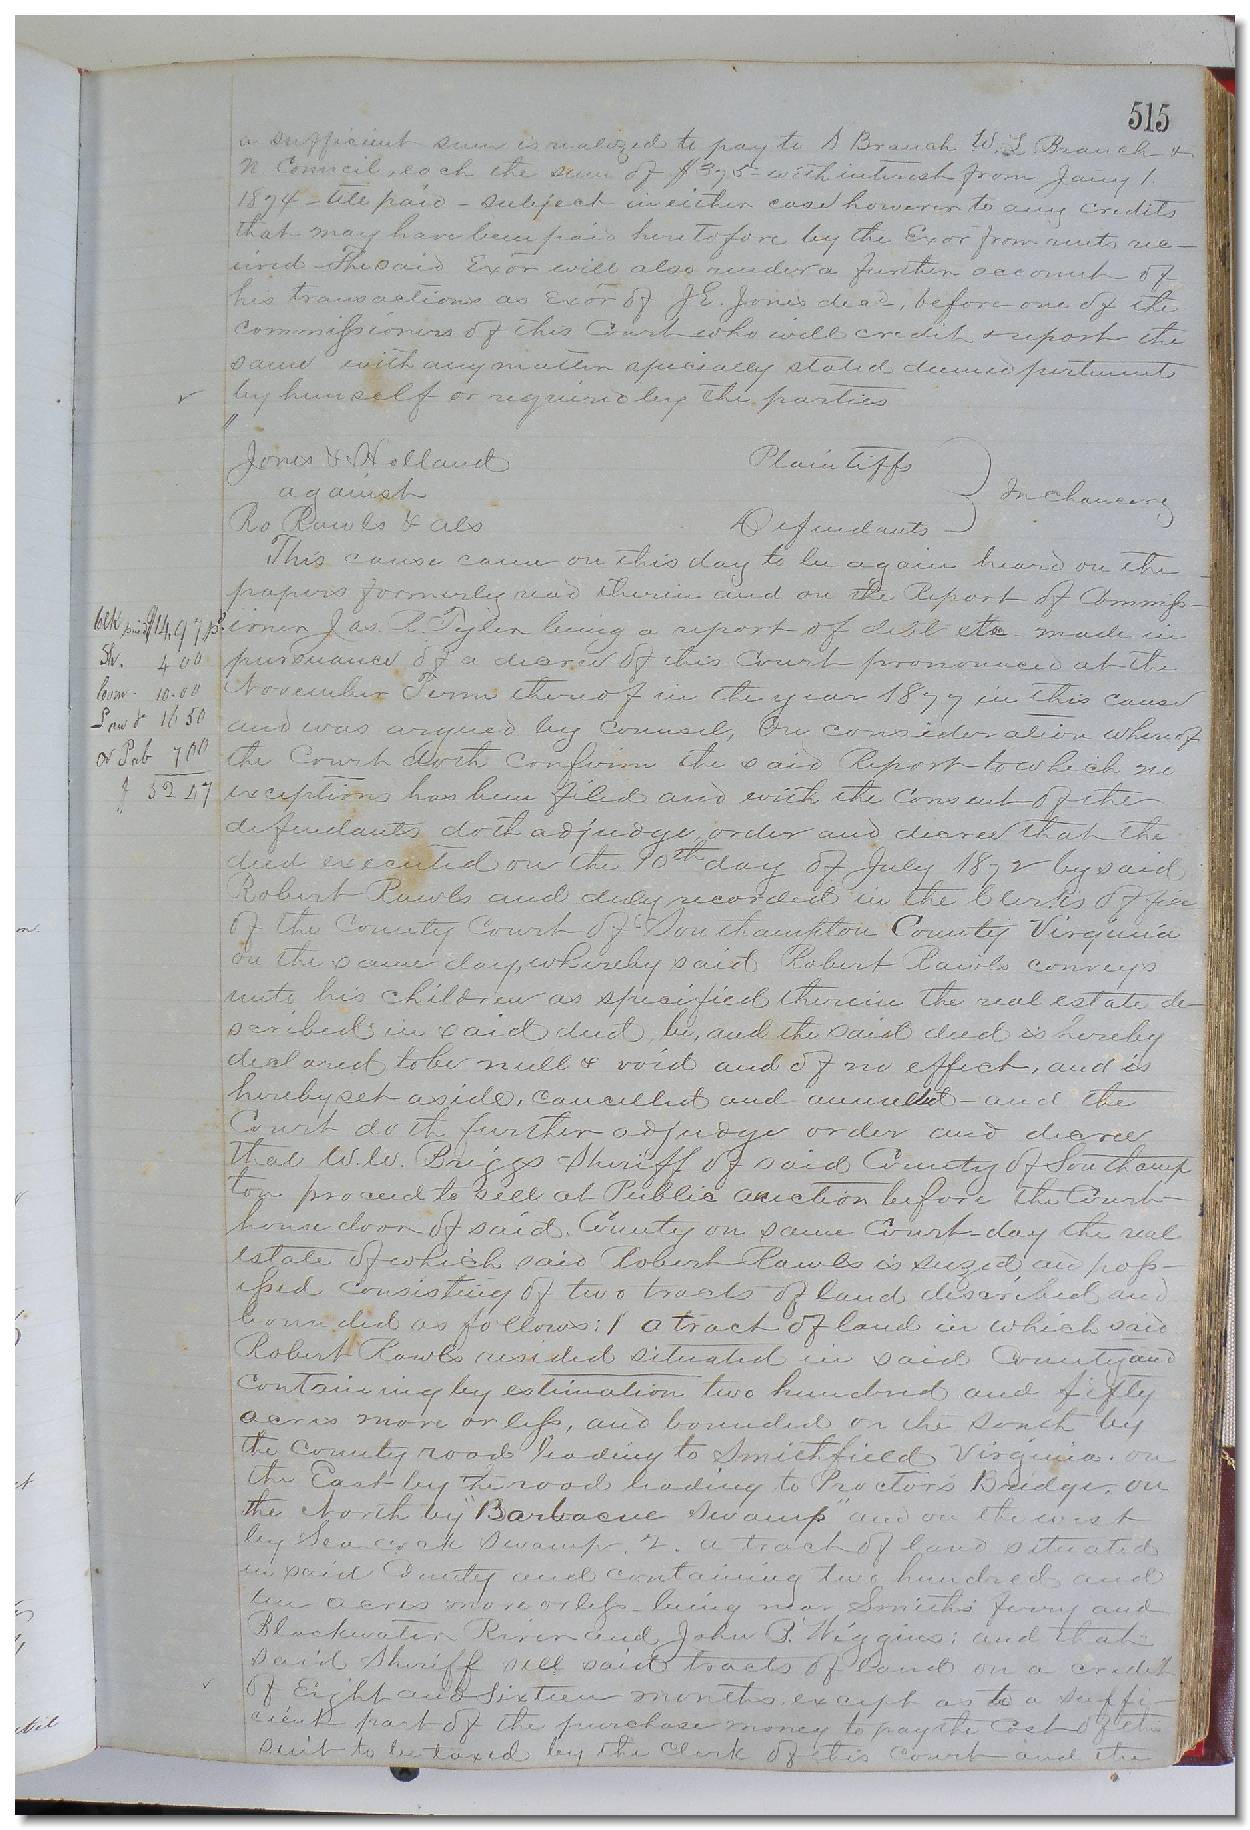 515
a sufficient sum is realized to pay to S Branch W. L. Branch &
N Council, each the sum of $375- with interest from Jany 1.
1874 - till paid - subject in either case however to any credits
that may have been paid heretofore by the Exor from rents rec-
eived - The said Exor will also render a further account of
his transactions as Exor of J. E. Jones decd, before one of the
commissioners of this Court who will credit & report the
same with any matter specially stated deemed pertinent
by himself or required by the parties
Jones & Holland Plaintiffs
against In chancery
Ro Rawls & als Defendants
This cause came on this day to be again heard on the
papers formerly read therein and on the Report of Commiss-
ioner Jas. R. Tyler being a report of debt etc. made in
pursuance of a decree of this Court pronounced at the
November Term thereof in the year 1877 in this cause
and was argued by Counsel, On consideration whereof
the Court doth confirm the said Report to which no
exceptions has been filed and with the consent of the
defendants doth adjudge, order and decree that the
deed executed on the 10th day of July 1872 by said
Robert Rawls and duly recorded in the Clerks office
of the County Court of Southampton County Virginia
on the same day, whereby said Robert Rawls conveys
unto his children as specified therein the real estate de-
scribed in said deed, be, and the said deed is hereby
declared to be null & void and of no effect, and is
hereby set aside, cancelled and annulled - and the
Court doth further adjudge order and decree
that W. W. Briggs Sheriff of said County of Southamp
ton proceed to sell at Public auction before the Court
house door of said County on some Court day the real
estate of which said Robert Rawls is seized and poss-
essed consisting of two tracts of land described and
bounded as follows: 1 a tract of land in which said
Robert Rawls resided situated in said County and
containing by estimation two hundred and fifty
acres more or less, and bounded on the south by
the County road leading to Smithfield Virginia. on
the East by the road leading to Proctor's Bridge, on
the North by "Barbacue Swamp" and on the west
by Seacock Swamp. 2. a tract of land situated
in said County and containing two hundred and
ten acres more or less - being near Smith's ferry and
Blackwater River and John B. Wiggins: and that
said Sheriff sell said tracts of land on a credit
of Eight and Sixteen months except as to a suffi-
cient part of the purchase money to pay the Cost of this
suit to be taxed by the Clerk of this Court and the
Sh. 4 00
Com. 10.00
16 50
Pab 7 00